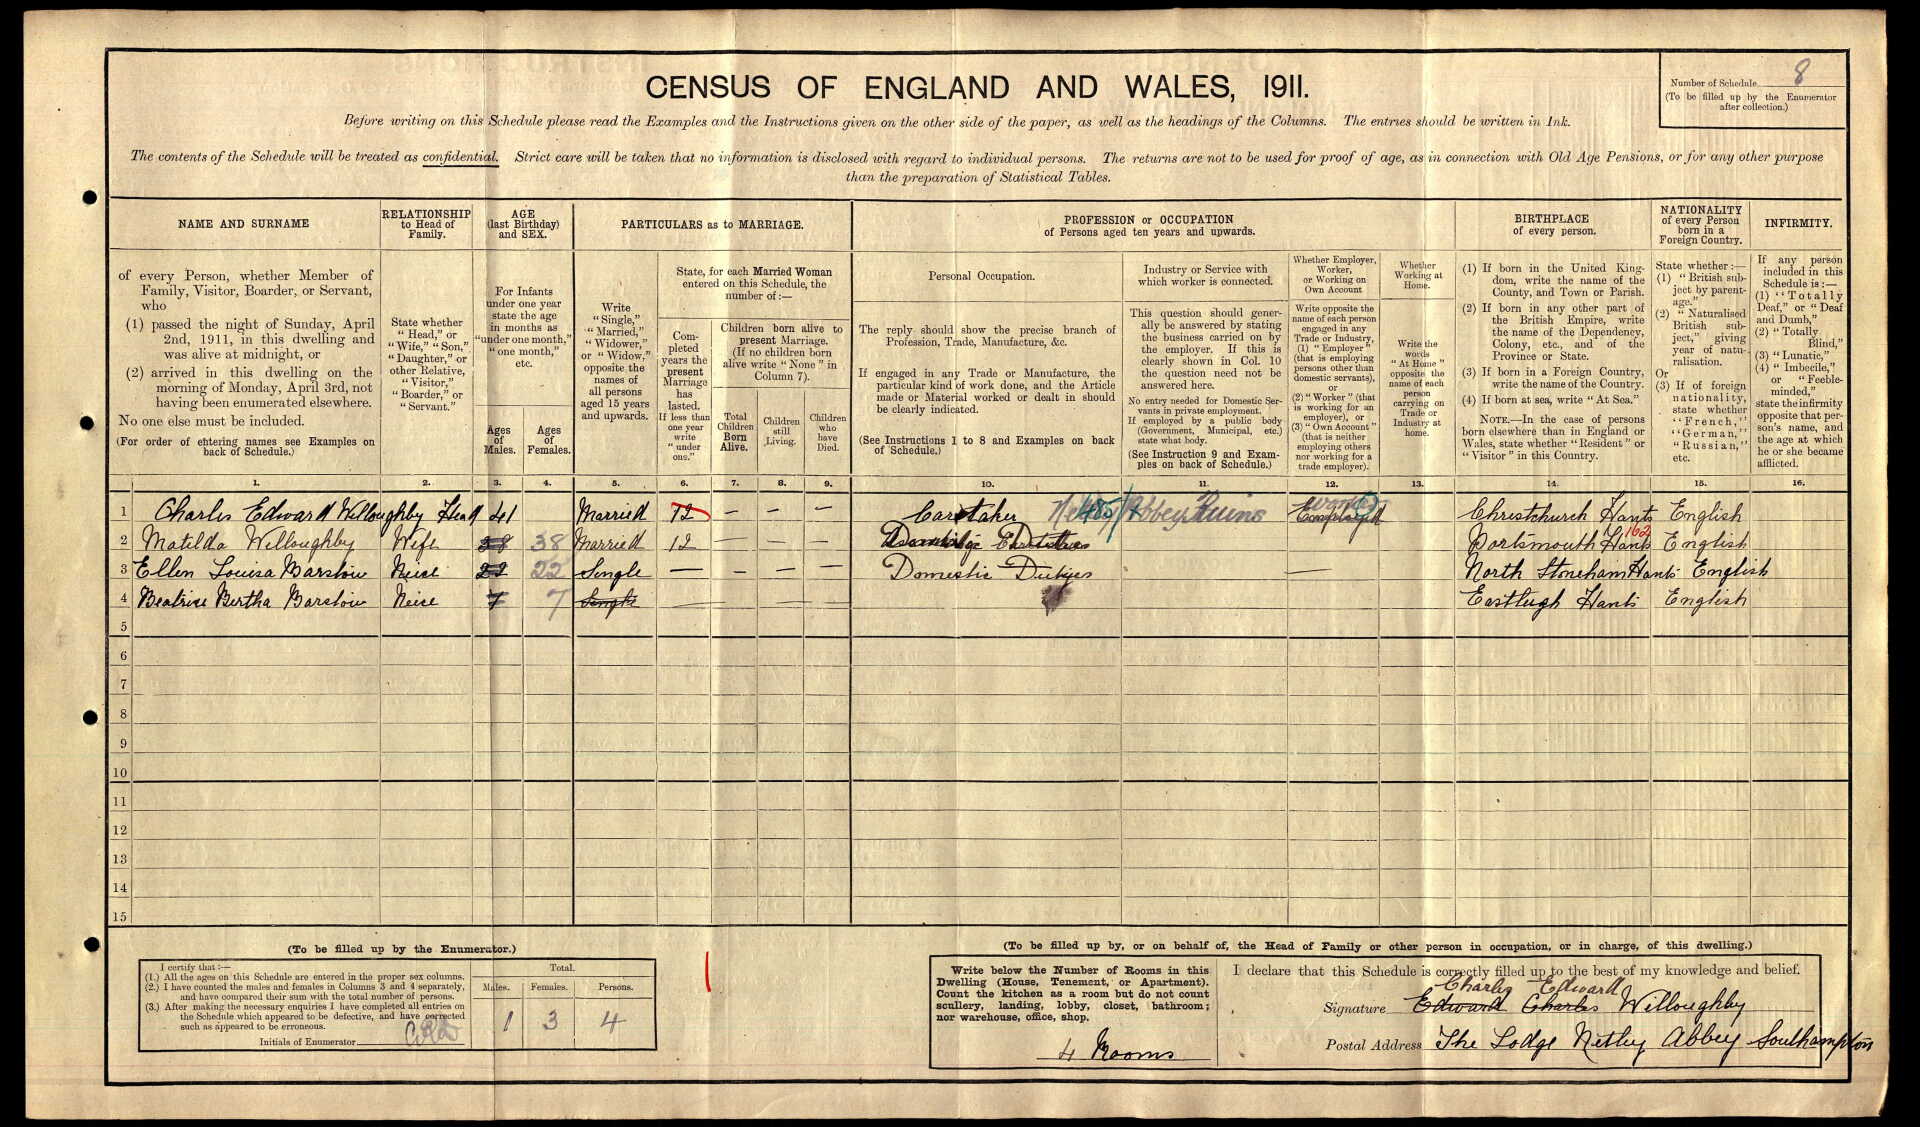 CENSUS OF ENGLAND AND WALES, 1911.
Number of Schedule 8
(To be filled up by the Enumerator
after collection.)
Before writing on this Schedule please read the Examples and the Instructions given on the other side of the paper, as well as the headings of the Columns. The entries should be written in Ink.
The contents of the Schedule will be treated as confidential. Strict care will be taken that no information is disclosed with regard to individual persons. The returns are not to be used for proof of age, as in connection with Old Age Pensions, or for any other purpose
than the preparation of Statistical Tables.
NAME AND SURNAME
of every Person, whether Member of
Family, Visitor, Boarder, or Servant,
who
(1) passed the night of Sunday, April
2nd, 1911, in this dwelling and
was alive at midnight, or
(2) arrived in this dwelling on the
morning of Monday, April 3rd, not
having been enumerated elsewhere.
No one else must be included.
(For order of entering names see Examples on
back of Schedule.)
RELATIONSHIP
to Head of
Family.
State whether
"Head," or
"Wife," "Son,"
"Daughter," or
other Relative,
"Visitor,"
"Boarder," or
"Servant."
AGE
(last Birthday)
and SEX.
For Infants
under one year
state the age
in months as
"under one month,"
"one month,"
etc.
Ages
of
Males.
Ages
of
Females.
PARTICULARS as to MARRIAGE.
Write
"Single,"
"Married,"
"Widower,"
or "Widow,"
opposite the
names of
all persons
aged 15 years
and upwards.
State, for each Married Woman
entered on this Schedule, the
number of:—
Com-
pleted
years the
present
Marriage
has
lasted.
If less than
one year
write
"under
one."
Children born alive to
present Marriage.
(If no children born
alive write "None" in
Column 7).
Total
Children
Born
Alive.
Children
still
Living.
Children
who
have
Died.
PROFESSION or OCCUPATION
of Persons aged ten years and upwards.
Personal Occupation.
The reply should show the precise branch of
Profession, Trade, Manufacture, &c.
If engaged in any Trade or Manufacture, the
particular kind of work done, and the Article
made or Material worked or dealt in should
be clearly indicated.
(See Instructions 1 to 8 and Examples on back
of Schedule.)
Industry or Service with
which worker is connected.
This question should gener-
ally be answered by stating
the business carried on by
the employer. If this is
clearly shown in Col. 10
the question need not be
answered here.
No entry needed for Domestic Ser-
vants in private employment.
If employed by a public body
(Government, Municipal, etc.)
state what body.
(See Instruction 9 and Exam-
ples on back of Schedule.)
Whether Employer,
Worker,
or Working on
Own Account
Write opposite the
name of each person
engaged in any
Trade or Industry,
(1) "Employer"
(that is employing
persons other than
domestic servants),
or
(2) "Worker" (that
is working for an
employer), or
(3) "Own Account"
(that is neither
employing others
nor working for a
trade employer).
Whether
Working at
Home.
Write the
words
"At Home"
opposite the
name of each
person
carrying on
Trade or
Industry at
home.
BIRTHPLACE
of every person.
(1) If born in the United King-
dom, write the name of the
County, and Town or Parish.
(2) If born in any other part of
the British Empire, write
the name of the Dependency,
Colony, etc., and of the
Province or State.
(3) If born in a Foreign Country,
write the name of the Country.
(4) If born at sea, write "At Sea."
NOTE.—In the case of persons
born elsewhere than in England or
Wales, state whether "Resident" or
"Visitor" in this Country.
NATIONALITY
of every Person
born in a
Foreign Country.
State whether:—
(1) "British sub-
ject by parent-
age."
(2) "Naturalised
British sub-
ject," giving
year of natu-
ralisation.
Or
(3) If of foreign
nationality,
state whether
"French,"
"German,"
"Russian,"
etc.
INFIRMITY.
If any person
included in this
Schedule is:—
(1) "Totally
Deaf," or "Deaf
and Dumb,"
(2) "Totally
Blind,"
(3) "Lunatic,"
(4) "Imbecile,"
or "Feeble-
minded,"
state the infirmity
opposite that per-
son's name, and
the age at which
he or she became
afflicted.
1. 2. 3. 4. 5. 6. 7. 8. 9. 10. 11. 12. 13. 14. 15. 16.
1 Charles Edward Willoughby Head 41 Married 12 – – – Caretaker Netley 485 Abbey Ruins Worker Employed Christchurch Hants English
2 Matilda Willoughby Wife 38 38 Married 12 – – – Portsmouth Hants 162 English
3 Ellen Louisa Barstow Neice 22 22 Single – – – – Domestic Duties — North Stoneham Hants English
4 Beatrice Bertha Barstow Neice 7 7 Single Eastleigh Hants English
5
6
7
8
9
10
11
12
13
14
15
(To be filled up by the Enumerator.)
I certify that:—
(1.) All the ages on this Schedule are entered in the proper sex columns.
(2.) I have counted the males and females in Columns 3 and 4 separately,
and have compared their sum with the total number of persons.
(3.) After making the necessary enquiries I have completed all entries on
the Schedule which appeared to be defective, and have corrected
such as appeared to be erroneous.
Initials of Enumerator
Total.
Males. Females. Persons.
1 3 4
(To be filled up by, or on behalf of, the Head of Family or other person in occupation, or in charge, of this dwelling.)
Write below the Number of Rooms in this
Dwelling (House, Tenement, or Apartment).
Count the kitchen as a room but do not count
scullery, landing, lobby, closet, bathroom;
nor warehouse, office, shop.
4 Rooms
I declare that this Schedule is correctly filled up to the best of my knowledge and belief.
Charles Edward
Signature Edward Charles Willoughby
Postal Address The Lodge Netley Abbey Southampton